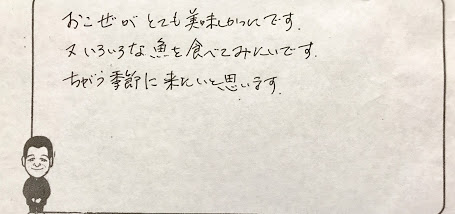 おこぜがとても美味しかったです.
又いろいろな魚を食べてみたいです.
ちがう季節に来たいと思います.